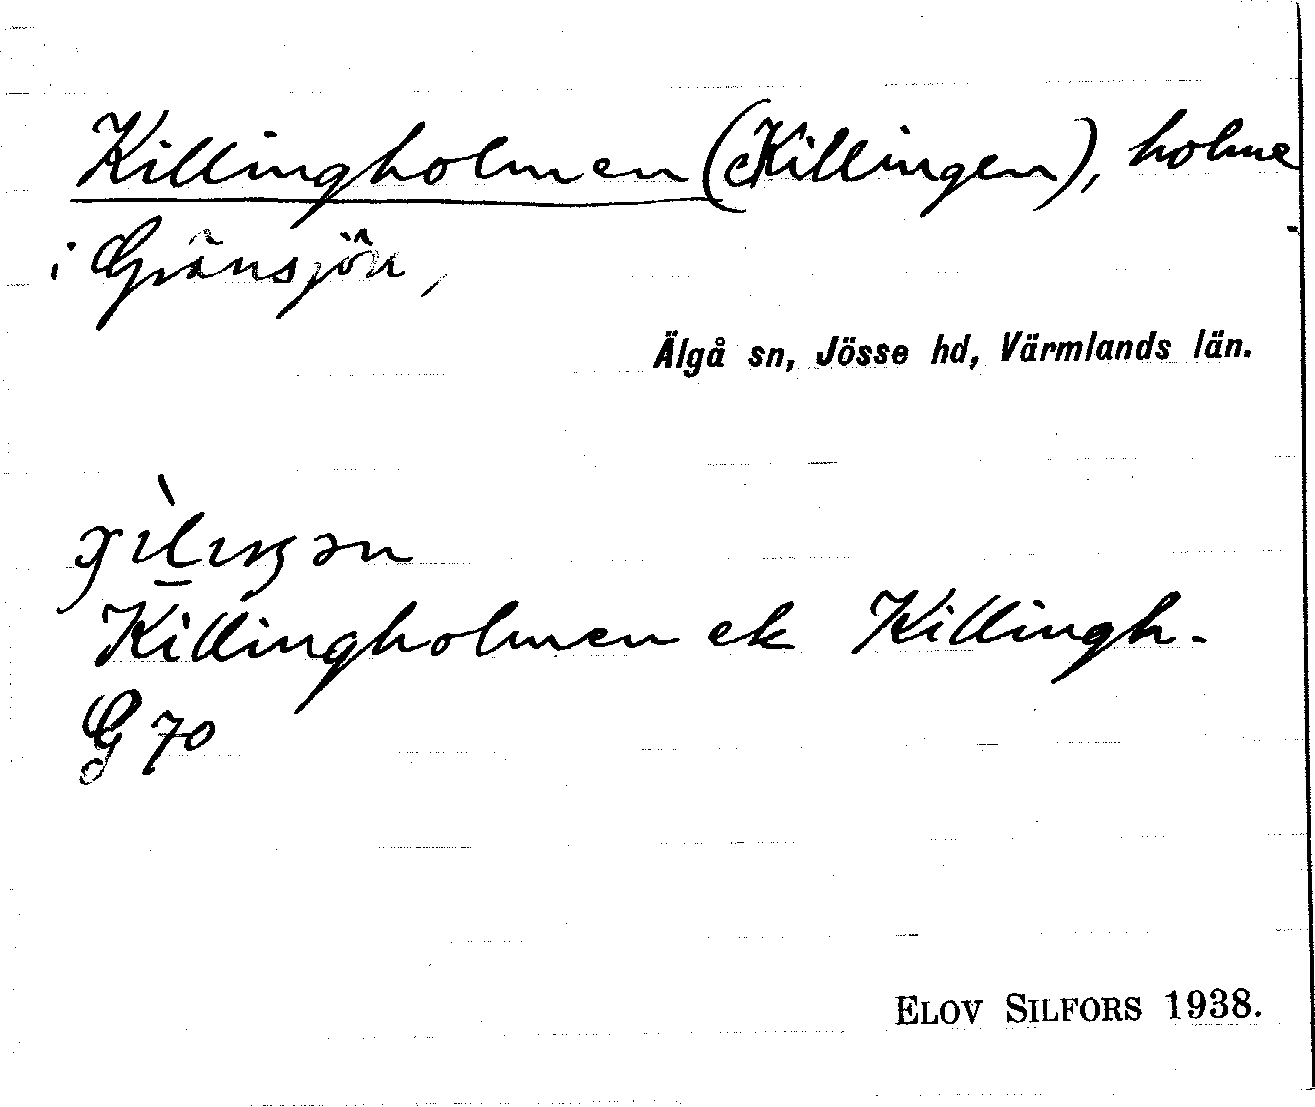 Killingholmen (Killingen), holme
i Gränsjön,
Älgå sn, Jösse hd, Värmlands län.
Killingholmen ek Killingh.
G 70
ELOV SILFORS 1938.